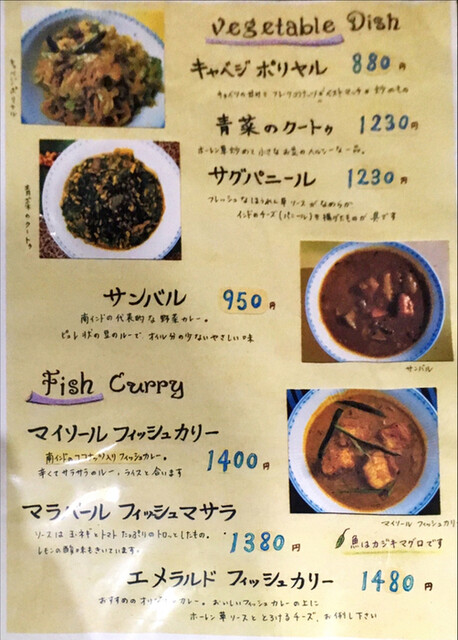 Vegetable Dish
キャベジ ポリヤル 880円
キャベツの甘味と フレークココナッツがベストマッチな 炒めもの
キャベジポリヤル
青菜のクートゥ 1230円
ホーレン草炒めと小さなお豆のヘルシーな一品。
サグパニール 1230円
フレッシュなほうれん草ソースがなめらか
インドのチーズ(パニール)を揚げたものが具です
青菜のクートゥ
サンバル 950円
南インドの代表的な野菜カレー。
ピュレ状の豆のルーで オイル分の少ないやさしい味
サンバル
Fish Curry
マイソール フィッシュカリー
南インドのココナッツ入りフィッシュカレー。
辛くてサラサラのルー、ライスと合います
1400円
マイソール フィッシュカリー
マラバール フィッシュマサラ
ソースは玉ネギとトマト たっぷりのトロっとしたもの。
レモンの酸味もきいています。
1380円
魚はカジキマグロです
エメラルド フィッシュカリー 1480円
おすすめのオリジナルカレー。おいしいフィッシュカレーの上に
ホーレン草ソースと とろけるチーズ、お試し下さい